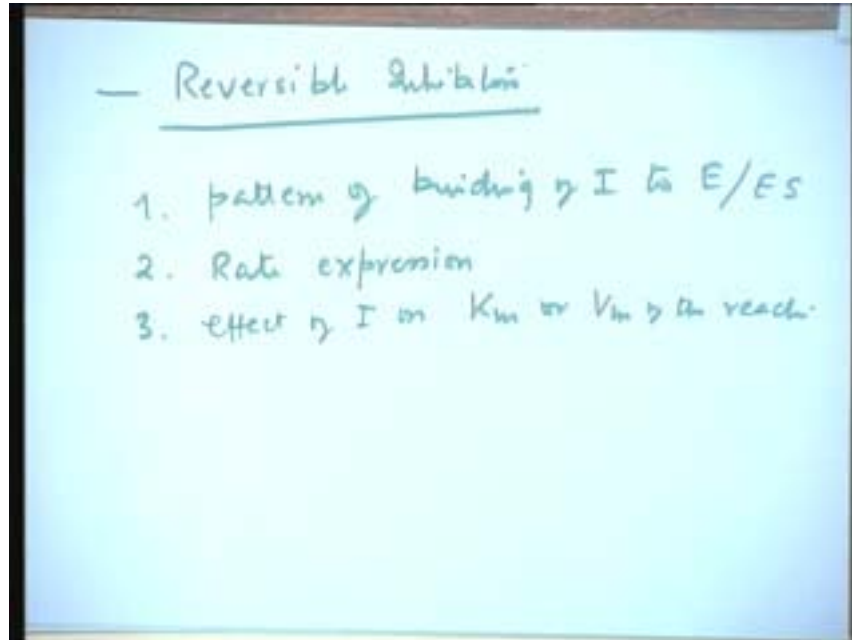 — Reversible Inhibition
1. pattern of binding of I to E/ES
2. Rate expression
3. effect of I on Km or Vm of the reach.